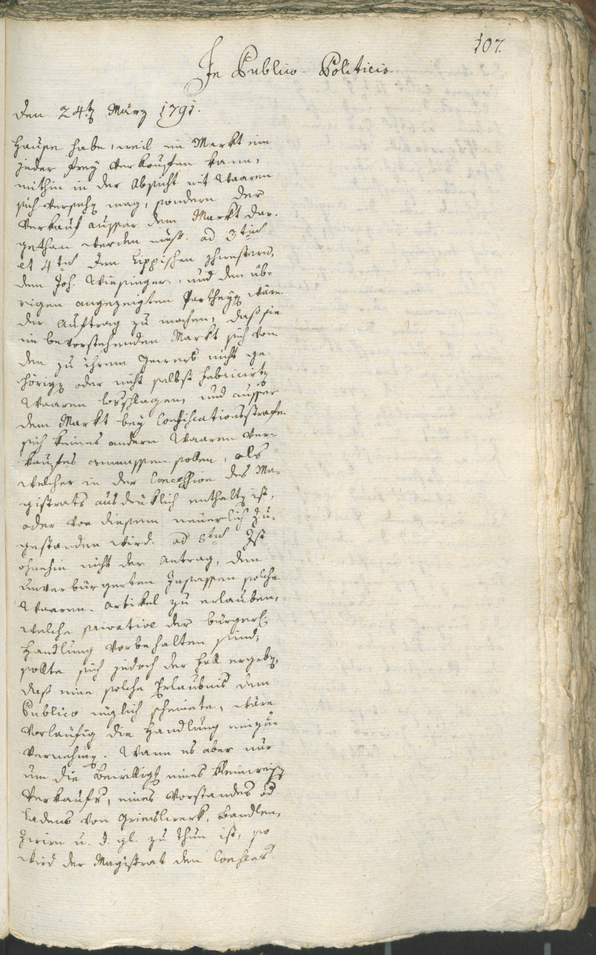 107.
In Publico-Politicis
den 24t März 1791.
Hause habe, weil im Markt ein
jeder frey verkauffen kann,
mithin in der Absicht mit Waaren
sich versehen mag, sondern der
Verkauf ausser dem Markt dar-
gethan werden muß. ad 3tium
et 4tum den Lippischen Schwestern,
dem Joh. Wiesinger, und den üb-
rigen angezeigten Partheyen wäre
der Auftrag zu machen, daß sie
im bevorstehenden Markt sich von
den zu ihrem Gewerb nicht ge-
hörigen oder nicht selbst fabricirten
Waaren losschlagen, und ausser
dem Markt bey Confiscationsstrafe
sich keines andern Waaren Ver-
kaufes anmassen sollen, als
welcher in der Concession des Ma-
gistrats ausdrüklich enthalten ist,
oder von diesem neuerlich zu-
gestanden wird. ad 5tum Ist
ohnehin nicht der Antrag, den
unverbürgerten Insassen solche
Waaren-Artikel zu erlauben,
welche privative der bürgerl.
Handlung vorbehalten sind,
sollte sich jedoch der Fall ergeben,
daß eine solche Erlaubnis dem
Publico nüzlich scheinete, wäre
vorläufig die Handlung einzu-
vernehmen. Wann es aber nur
um die Bewilligung eines kleinweisen
Verkaufs, eines Vorstandes od
Ladens von Grieslwerk, Bandlen,
Zwirn u. d. gl. zu thun ist, so
wird der Magistrat den